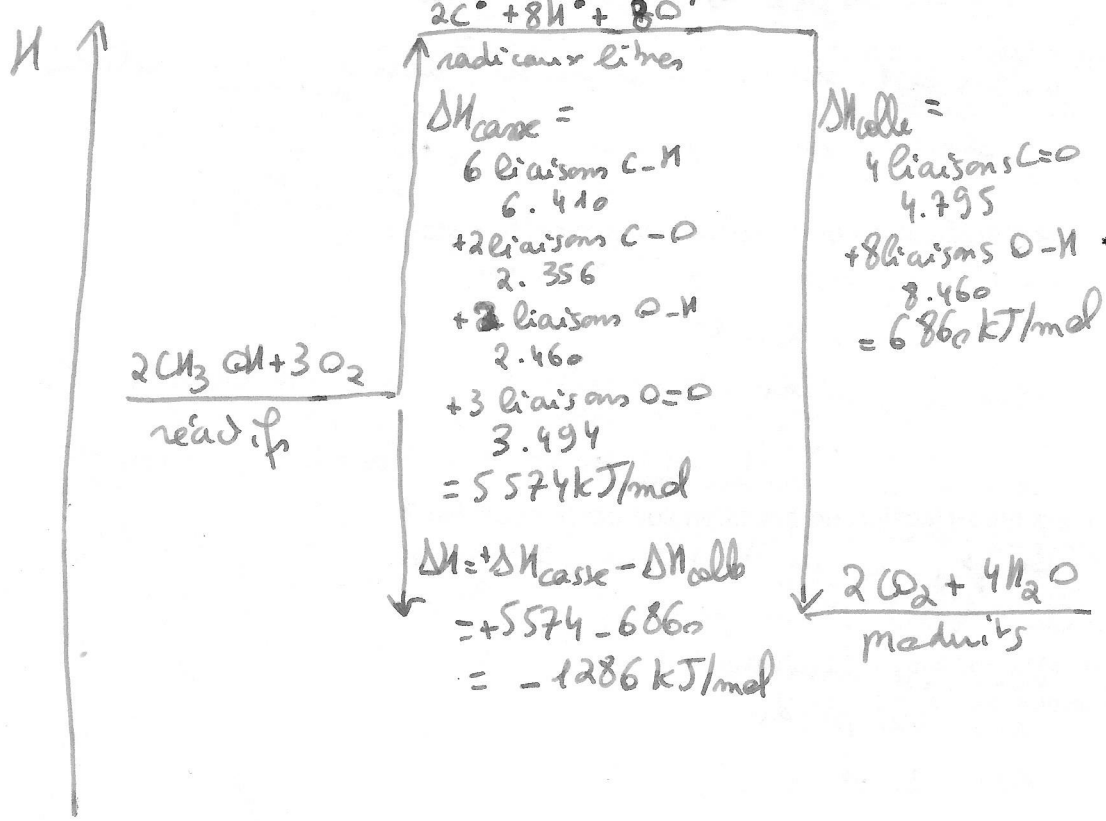 H
2C• + 8H• + 8O•
radicaux libres
ΔHcasse =
6 liaisons C-H
6.410
+2 liaisons C-O
2.356
+2 liaisons O-H
2.460
+3 liaisons O=O
3.494
= 5574 kJ/mol
ΔHcolle =
4 liaisons C=O
4.795
+8 liaisons O-H
8.460
= 6860 kJ/mol
2CH3OH + 3O2
réactifs
ΔH = +ΔHcasse - ΔHcolle
= +5574 - 6860
= -1286 kJ/mol
2CO2 + 4H2O
produits